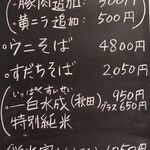 豚肉追加 500円)
(黄ニラ追加 500円)
・ウニそば 4800円
・すだちそば 2050円
いっぱくすいせい
・一白水成(秋田) 950円
グラス650円
特別純米